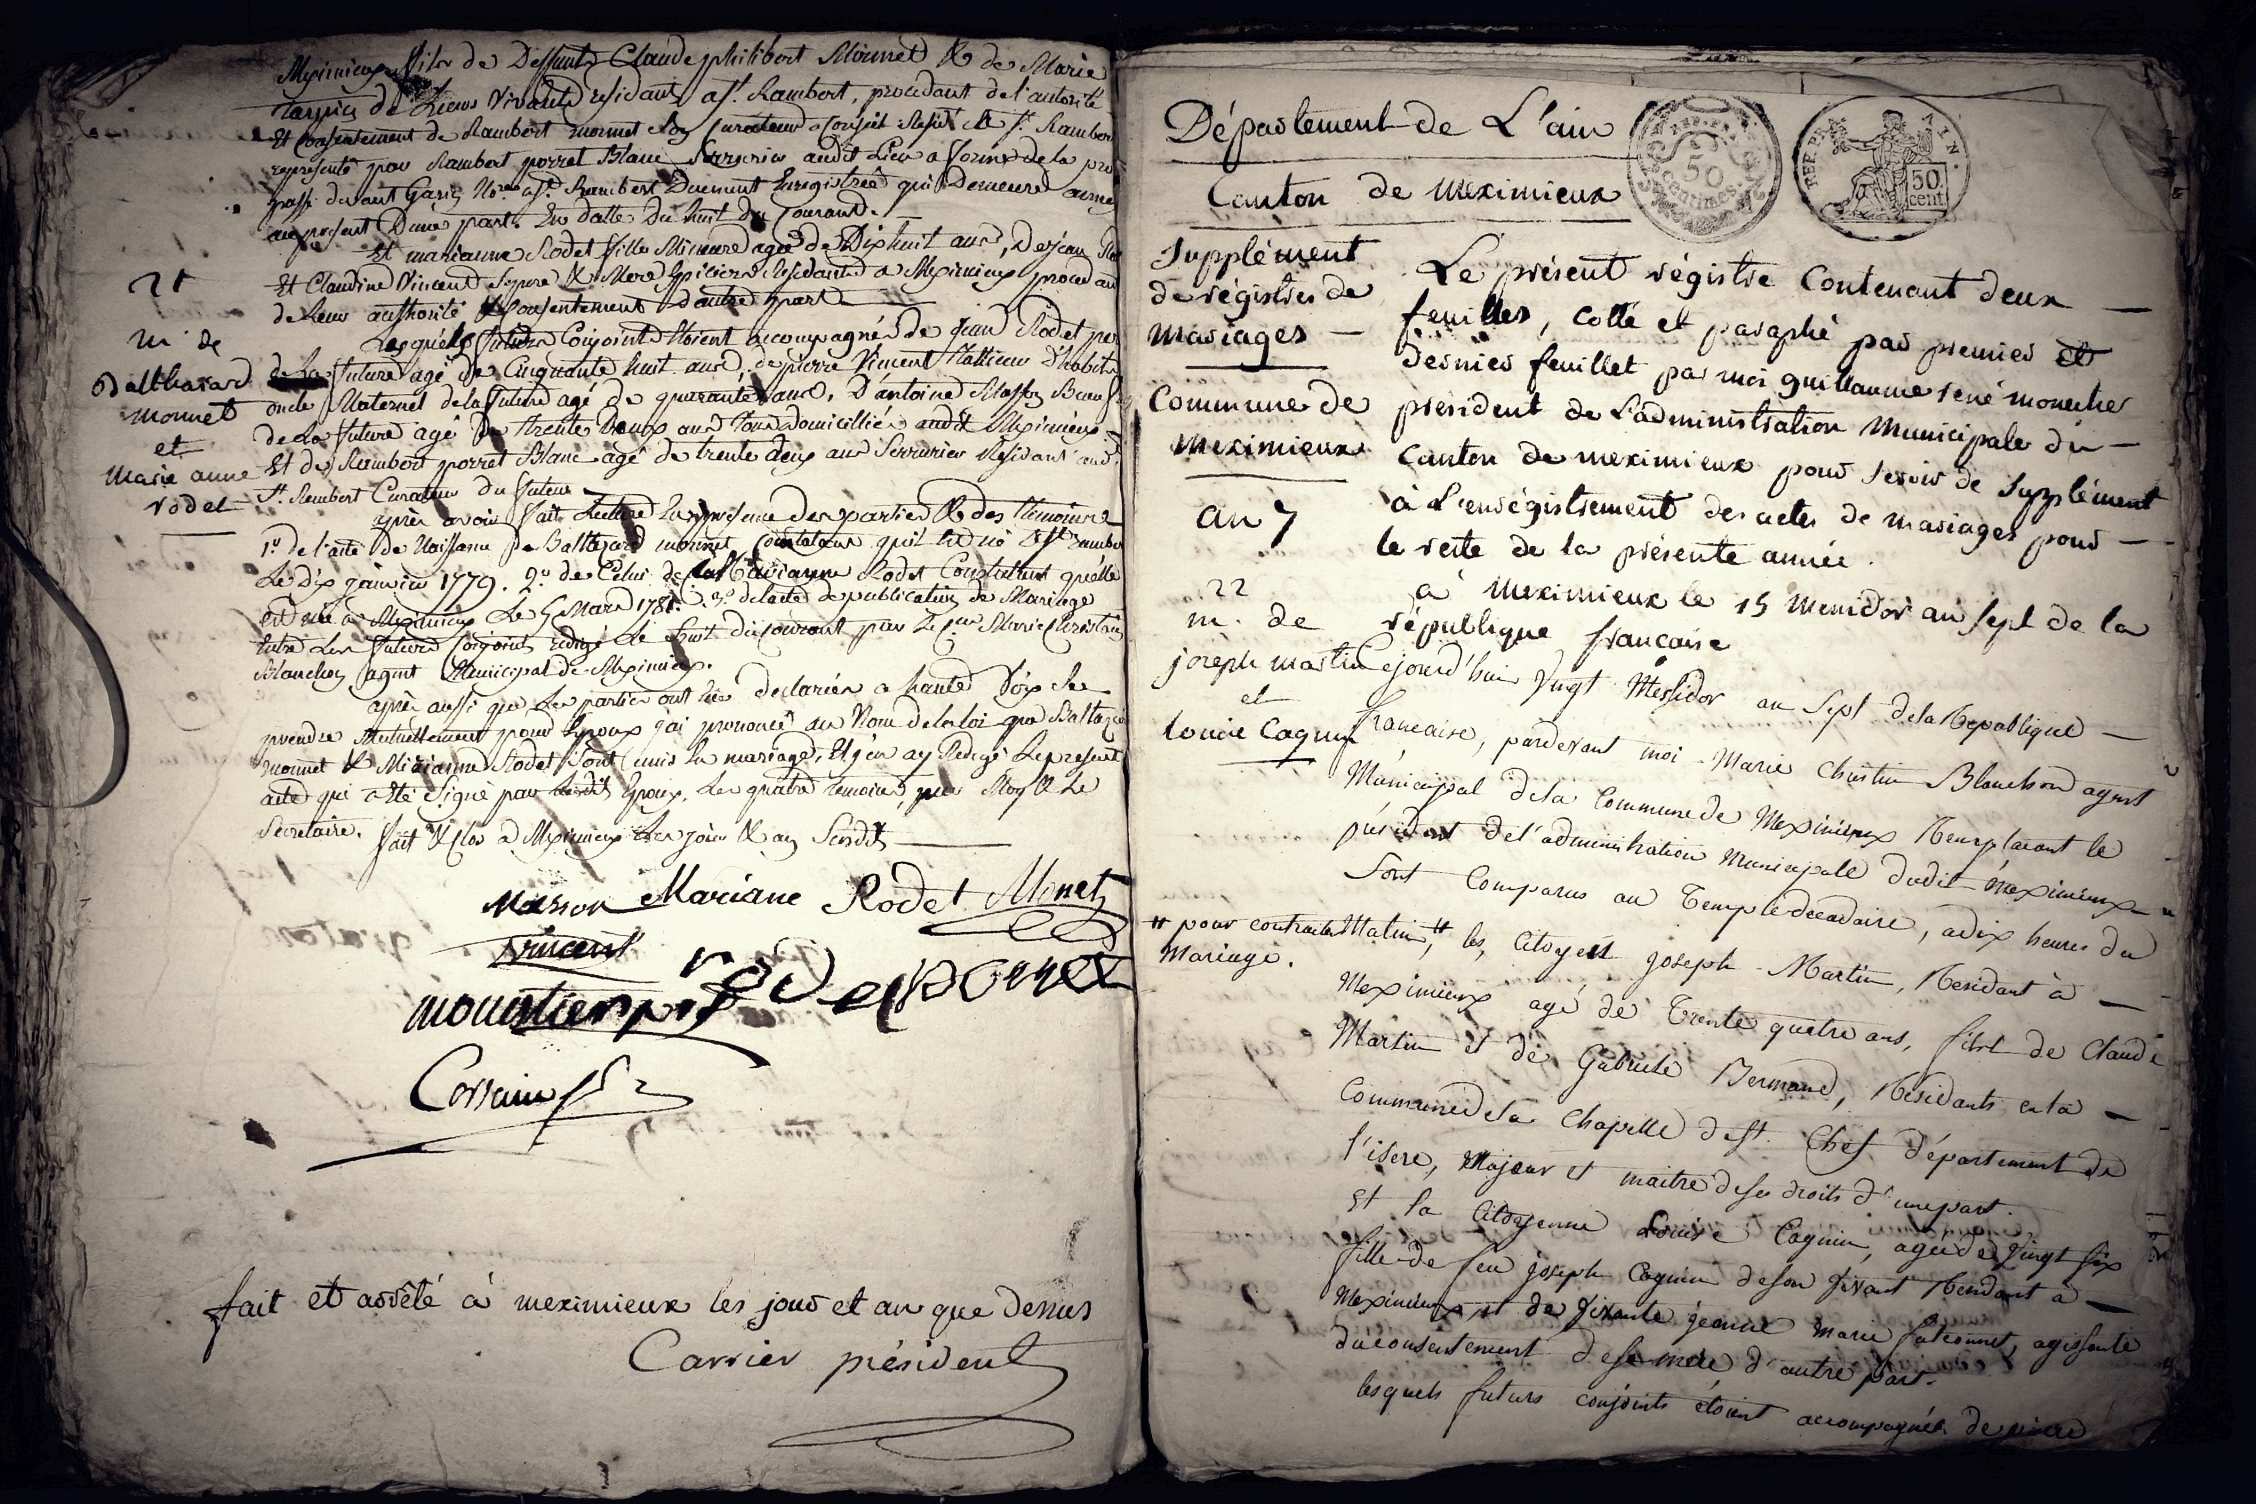 Meximieux fils de Deffunt Claude philibert Monnet & de Marie
de Leurs Vivants residants a St. Rambert, procedant de l'autorité
Et Consentement de Rambert monnet son Curateur
representé par Rambert porret Blanc Serrurier audit Lieu a forme de la
passé devant Garin No.re a St. Rambert Duement Enregistrée qui Demeure
au present D'une part. En datte Du huit du Courant.
Et marianne Rodet fille Mineure agée de Dixhuit ans, De jean
Et Claudine Vincent Ses pere & Mere Epiciers Residants a Meximieux
de Leur authorité & Consentement d'autre part
Lesquels futurs Conjoints Etoient accompagnés De jean Rodet
de la future agé de Cinquante huit ans, de pierre Vincent Tailleur D'habits
oncle Maternel de la future agé de quarante ans, D'antoine Masson
de la future agé de trente Deux ans Tous domicilliés audit Meximieux
Et de Rambert porret Blanc agé de trente deux ans Serrurier Residant
St. Rambert Curateur du futeur
après avoir fait Lecture En presence des parties & des temoins
1o. de l'acte de Naissance de Baltazard monnet Constatant qu'il Est né a St. Rambert
Le Dix janvier 1779. 2o. de Celui de Marianne Rodet Constatant quelle
est née a Meximieux Le 5 Mars 1781. 3o. de l'acte de publication de Mariage
Entre Les futurs Conjoints redigé Le huit du Courant par Le Marie Christin
Blanchon agent Municipal de Meximieux.
après aussi que Les parties ont Eu declarées a haute Voix Se
prendre Mutuellement pour Epoux j'ai prononcé au Nom de la loi que Baltazard
monnet & Marianne Rodet Sont unis En mariage, Et j'en ay Redigé Le present
acte qui a été Signé par Lesdits Epoux, Les quatre temoins, par Moy & Le
Secretaire. fait & Clos a Meximieux Les jour & an Susdits
21
m. de
Balthazard
monnet
et
Marie anne
rodet
Masson Mariane Rodet Monet
Vincent
Corsain
fait et arrêté à meximieux les jour et an que dessus
Carrier président
Département de L'ain
Canton de meximieux
REP. FRA.
50
centimes
REP. FRA. AIN.
50
cent
Supplément
de régistres de
Mariages
Commune de
Meximieux
an 7
Le présent régistre Contenant deux
feuilles, cotté et paraphé par premier et
dernier feuillet par moi guillaume rené
président de L'administration Municipale du
Canton de meximieux pour servir de supplément
à L'enrégistrement des actes de mariages pour
le reste de la présente année.
à Meximieux le 15 Messidor an sept de la
république française
22
m. de
joseph martin
et
Louise Cagnin
Cejourd'huy Vingt Messidor an Sept de la Republique
francaise, pardevant moi Marie Christin Blanchon agent
Municipal de la Commune de Meximieux Remplacant le
président de l'administration Municipalle dudit Meximieux
Sont Comparus au Temple decadaire, a dix heures du
Matin, # les Citoyen joseph Martin, Residant à
# pour contracter
Mariage.
Meximieux agé de Trente quatre ans, fils de Claude
Martin et de Gabrielle Bermand, Residants en la
Commune de la Chapelle de St. Chef Département de
l'isere, Majeur et maitre de ses droits d'une part.
Et la Citoyenne Louise Cagnin, agée de Vingt six
fille de feu joseph Cagnin de son Vivant Residant à
Meximieux, et de Vivante jeanne Marie falconnet, agissante
du consentement de sa mere d'autre part.
lesquels futurs conjoints étoient accompagnés de pierre